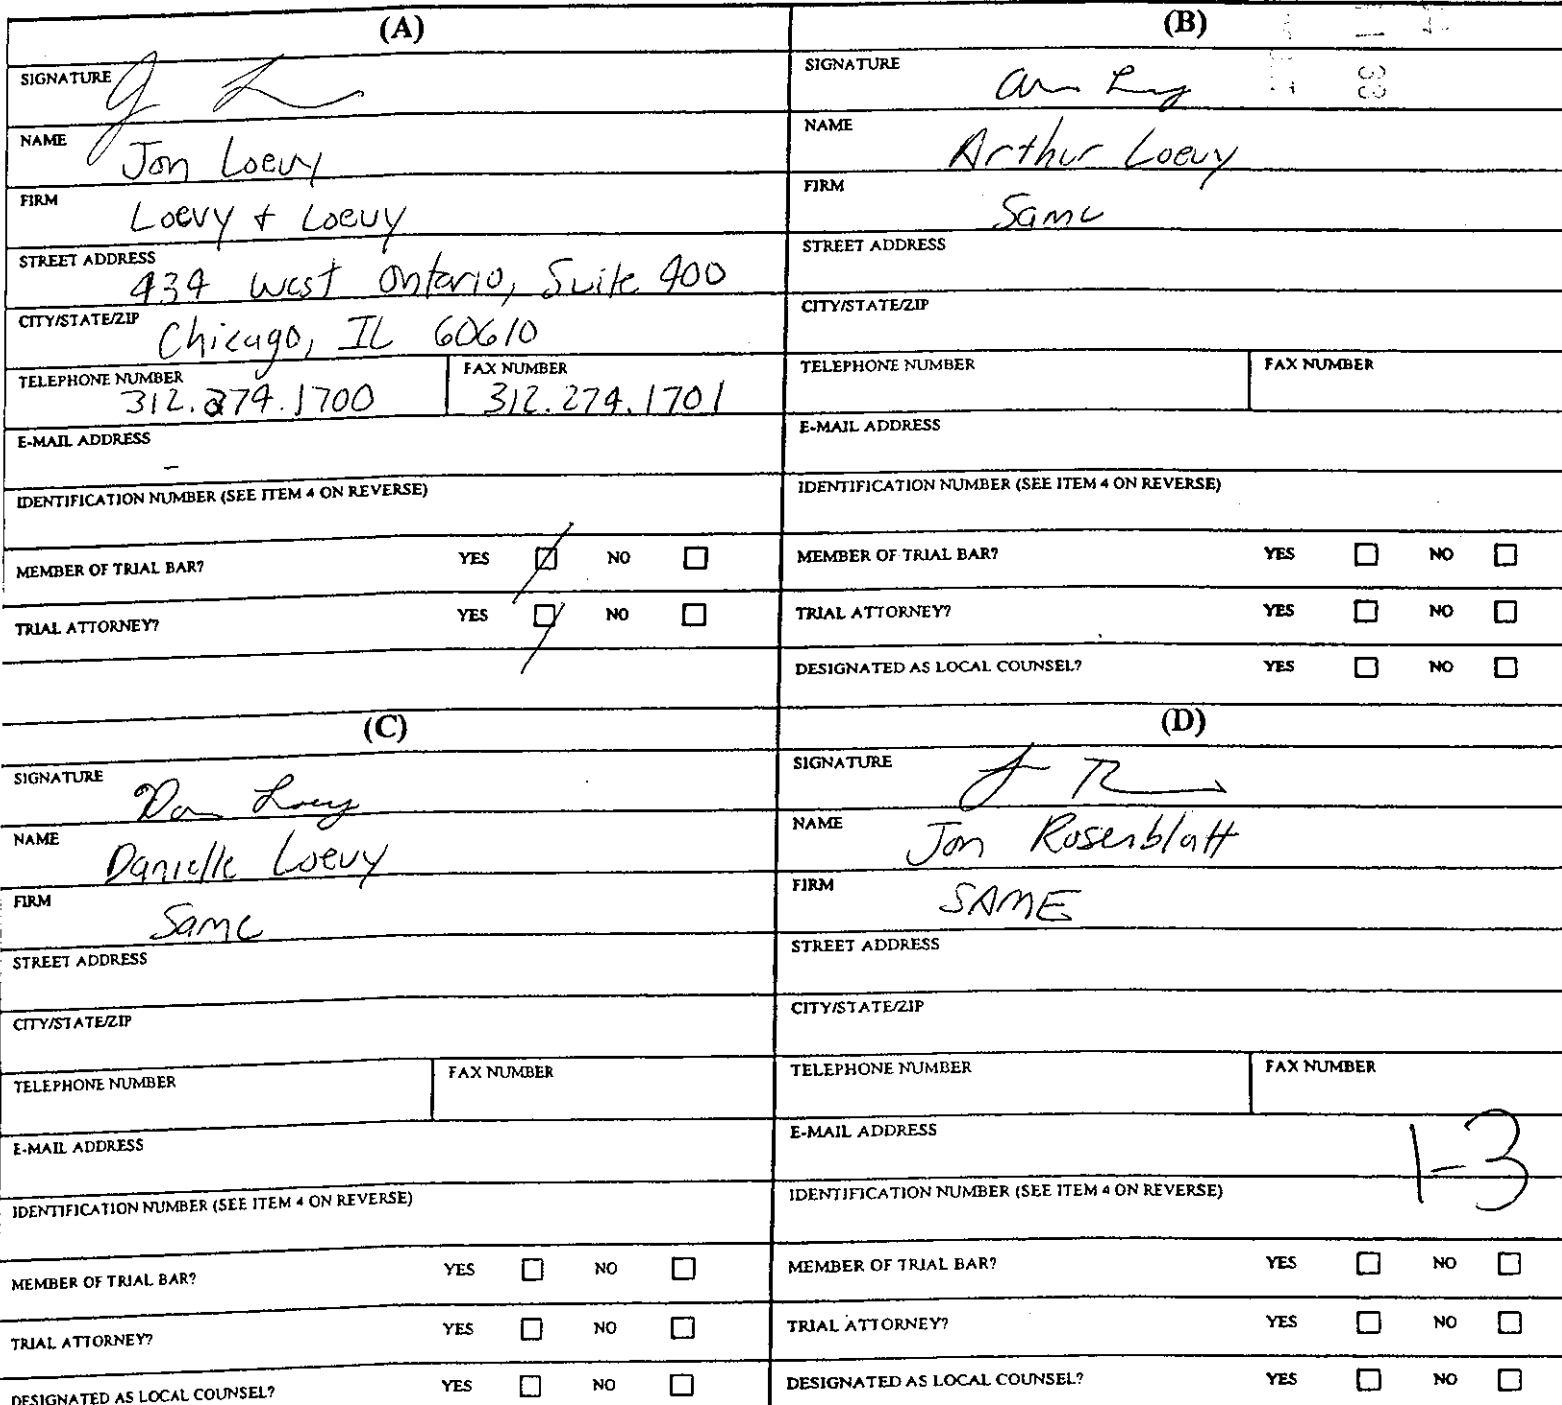 (A)
SIGNATURE
NAME Jon Loevy
FIRM Loevy + Loevy
STREET ADDRESS 434 West Ontario, Suite 400
CITY/STATE/ZIP Chicago, IL 60610
TELEPHONE NUMBER 312.274.1700 FAX NUMBER 312.274.1701
E-MAIL ADDRESS -
IDENTIFICATION NUMBER (SEE ITEM 4 ON REVERSE)
MEMBER OF TRIAL BAR? YES NO
TRIAL ATTORNEY? YES NO
(B)
SIGNATURE
NAME Arthur Loevy
FIRM Same
STREET ADDRESS
CITY/STATE/ZIP
TELEPHONE NUMBER FAX NUMBER
E-MAIL ADDRESS
IDENTIFICATION NUMBER (SEE ITEM 4 ON REVERSE)
MEMBER OF TRIAL BAR? YES NO
TRIAL ATTORNEY? YES NO
DESIGNATED AS LOCAL COUNSEL? YES NO
(C)
SIGNATURE
NAME Danielle Loevy
FIRM Same
STREET ADDRESS
CITY/STATE/ZIP
TELEPHONE NUMBER FAX NUMBER
E-MAIL ADDRESS
IDENTIFICATION NUMBER (SEE ITEM 4 ON REVERSE)
MEMBER OF TRIAL BAR? YES NO
TRIAL ATTORNEY? YES NO
DESIGNATED AS LOCAL COUNSEL? YES NO
(D)
SIGNATURE
NAME Jon Rosenblatt
FIRM SAME
STREET ADDRESS
CITY/STATE/ZIP
TELEPHONE NUMBER FAX NUMBER
E-MAIL ADDRESS
1-3
IDENTIFICATION NUMBER (SEE ITEM 4 ON REVERSE)
MEMBER OF TRIAL BAR? YES NO
TRIAL ATTORNEY? YES NO
DESIGNATED AS LOCAL COUNSEL? YES NO